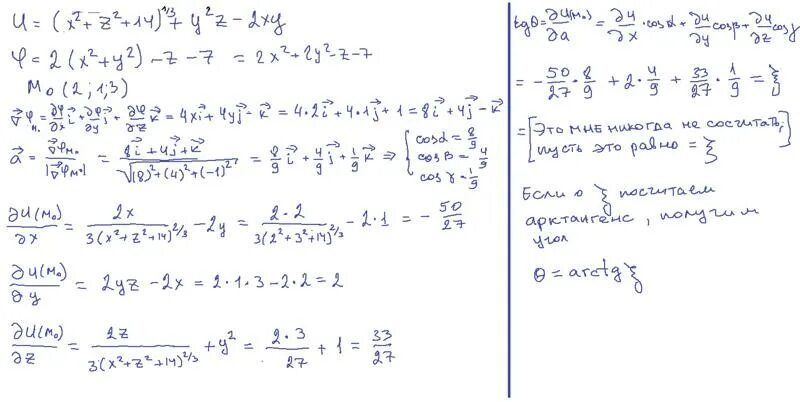 U = (x² + z² + 14)^1/3 + y²z − 2xy
φ = 2(x² + y²) − z − 7 = 2x² + 2y² − z − 7
M₀(2; 1; 3)
∇⃗φ_M₀ = ∂φ/∂x i⃗ + ∂φ/∂y j⃗ + ∂φ/∂z k⃗ = 4x i⃗ + 4y j⃗ − k⃗ = 4·2i⃗ + 4·1j⃗ + 1 = 8i⃗ + 4j⃗ − k⃗
a⃗ = ∇⃗φ_M₀ / |∇⃗φ_M₀| = (8i⃗ + 4j⃗ + k⃗) / √((8)² + (4)² + (−1)²) = 8/9 i⃗ + 4/9 j⃗ + 1/9 k⃗ ⇒ { cosα = 8/9
cosβ = 4/9
cosγ = 1/9
∂U(M₀)/∂x = 2x / 3(x² + z² + 14)^2/3 − 2y = 2·2 / 3(2² + 3² + 14)^2/3 − 2·1 = − 50/27
∂U(M₀)/∂y = 2yz − 2x = 2·1·3 − 2·2 = 2
∂U(M₀)/∂z = 2z / 3(x² + z² + 14)^2/3 + y² = 2·3/27 + 1 = 33/27
tgθ = ∂U(M₀)/∂a = ∂u/∂x · cosα + ∂u/∂y cosβ + ∂u/∂z cosγ
= − 50/27 · 8/9 + 2 · 4/9 + 33/27 · 1/9 = ξ
= [Это мне никогда не сосчитать;
пусть это равно = ξ]
Если от ξ посчитаем
арктангенс, получим
угол
θ = arctg ξ